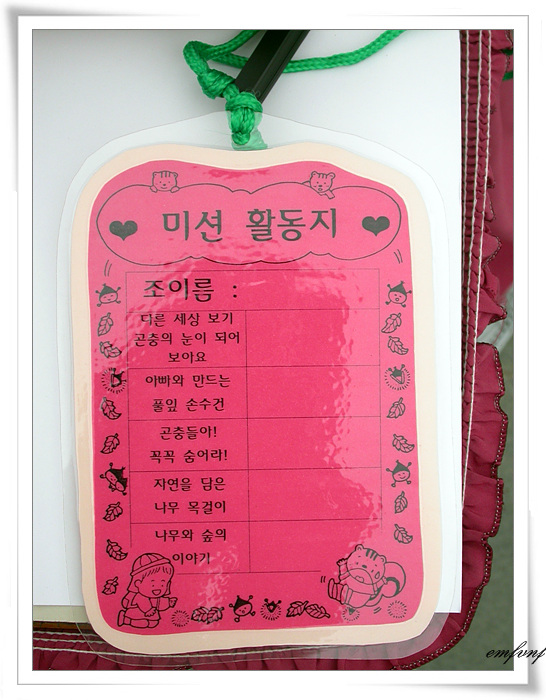 미션 활동지
조이름 :
다른 세상 보기
곤충의 눈이 되어
보아요
아빠와 만드는
풀잎 손수건
곤충들아!
꼭꼭 숨어라!
자연을 담은
나무 목걸이
나무와 숲의
이야기
emfvnf